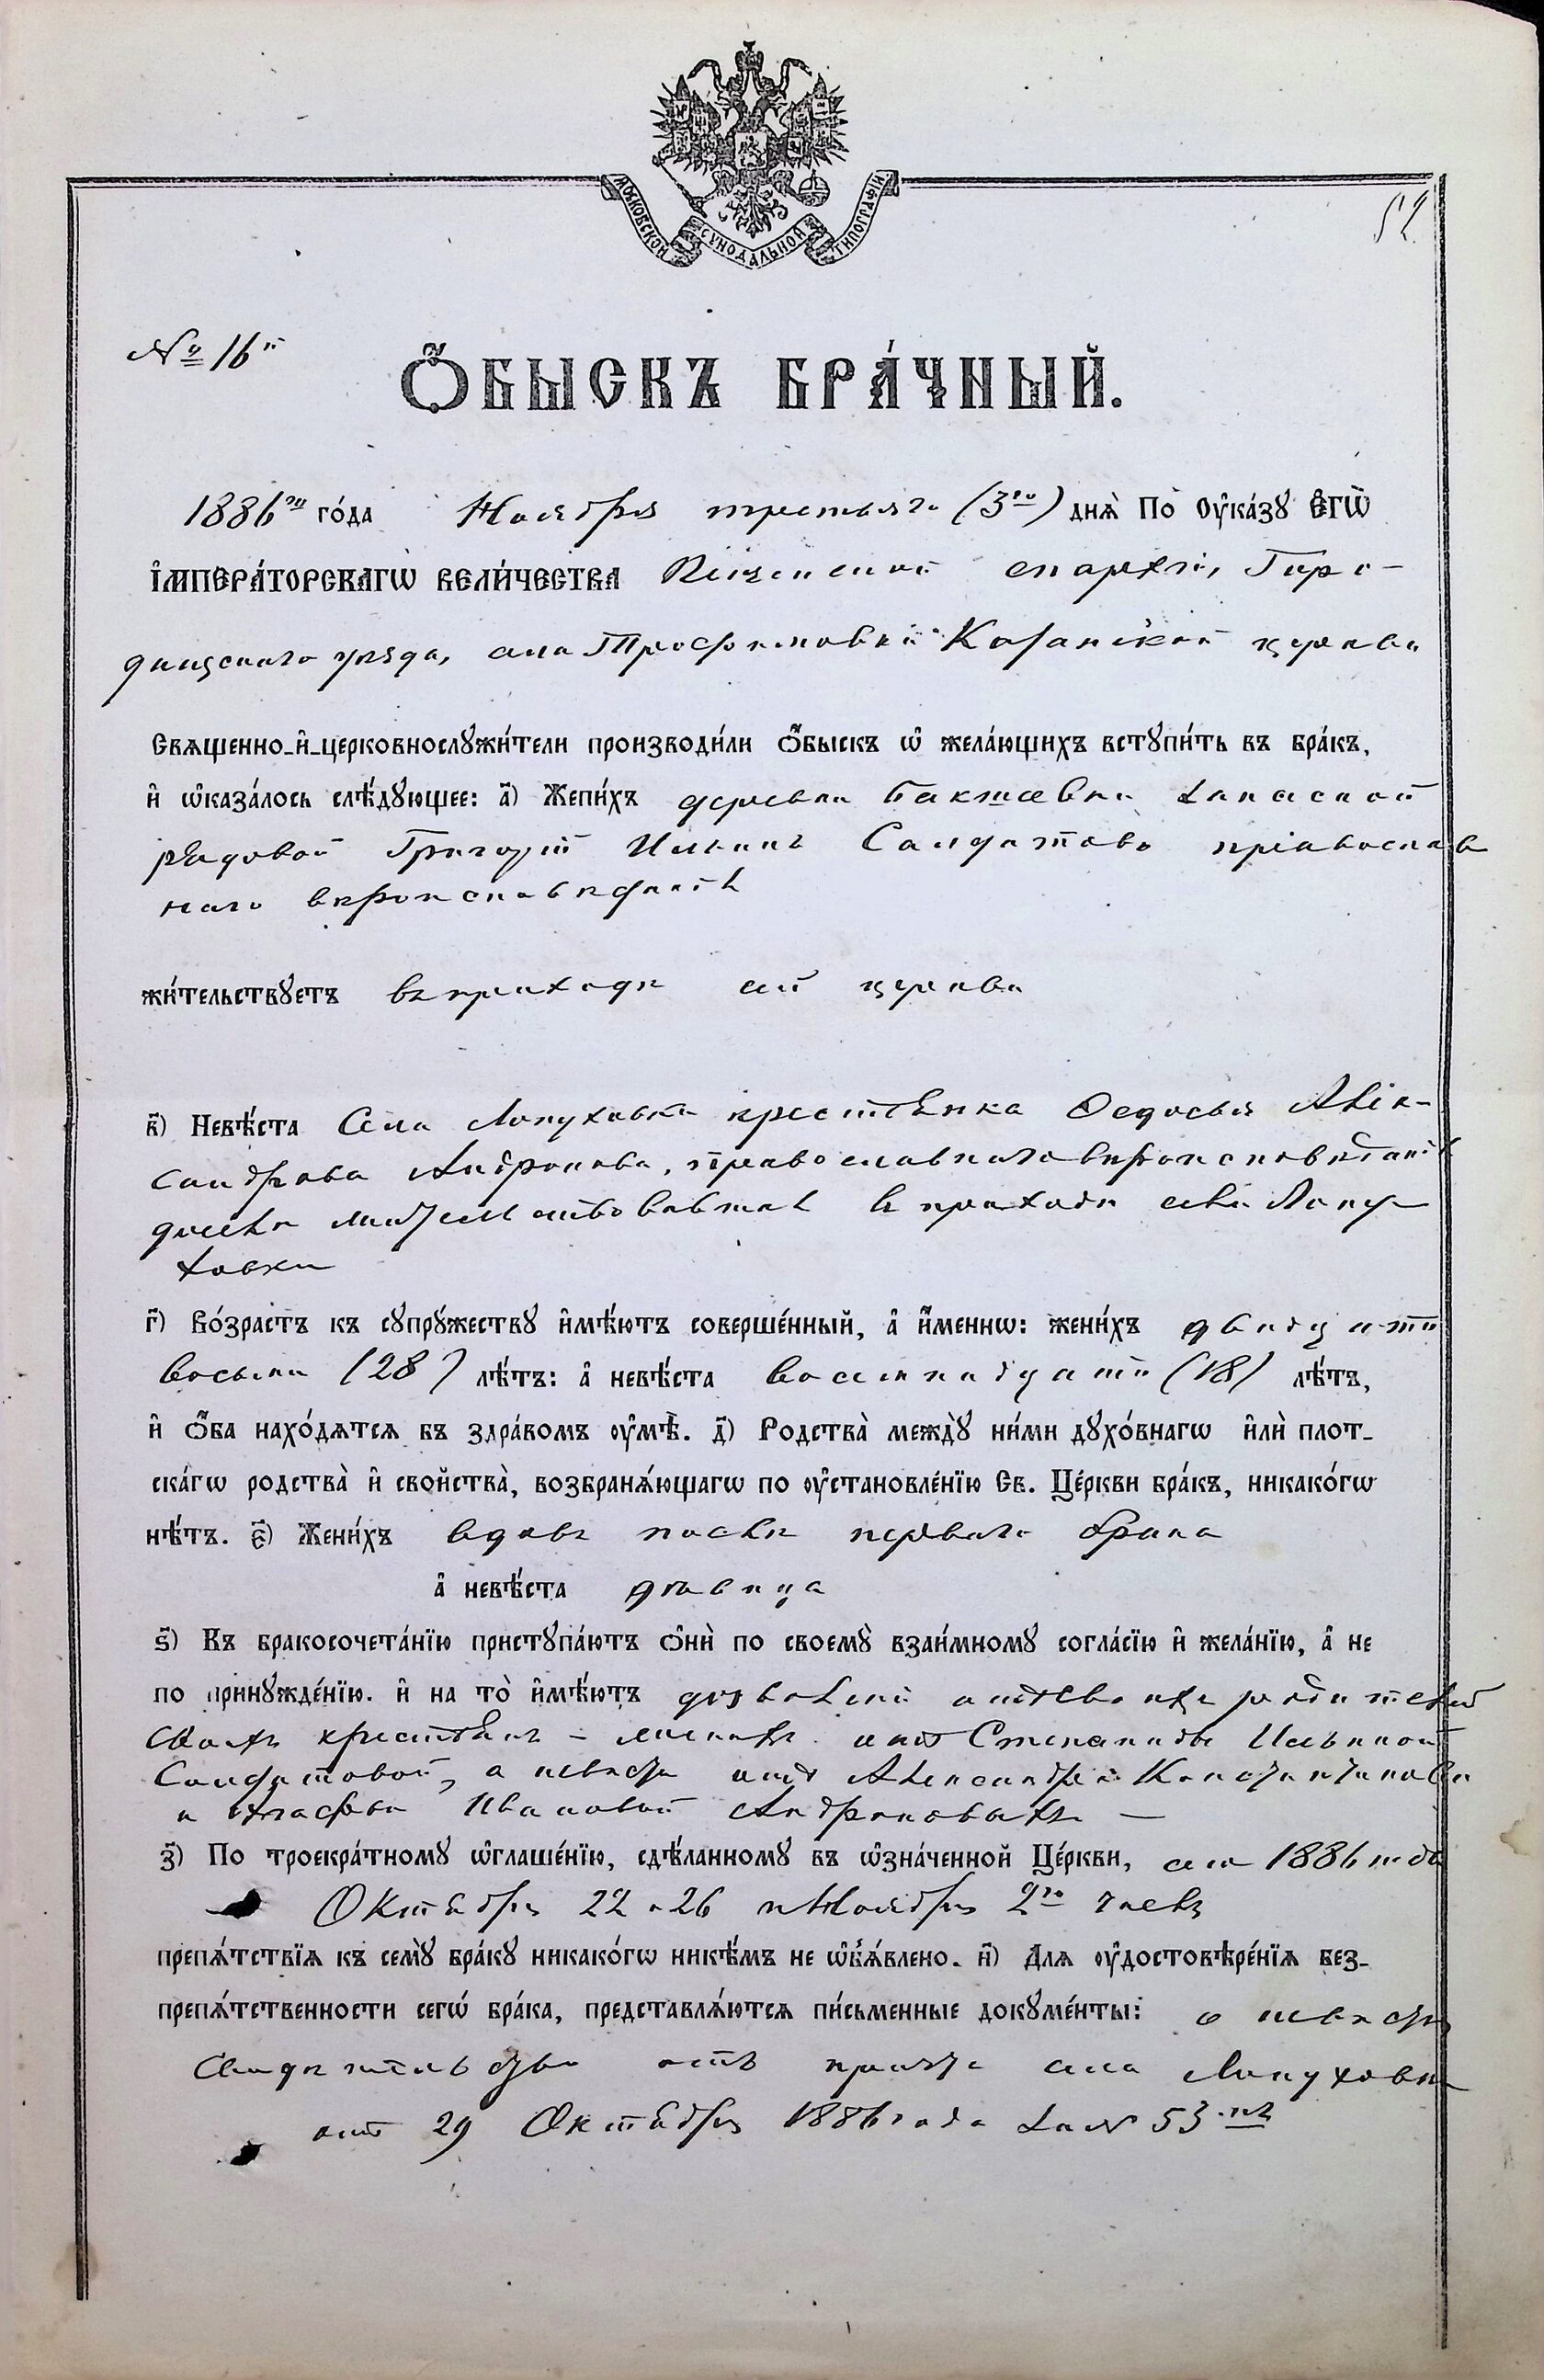 МОСКОВСКОЙ СУНОДАЛЬНОЙ ТИПОГРАФІИ
52
№ 16й
Ѻ҆БЫСКЪ БРА́ЧНЫЙ.
1886го го́да Ноября третьяго (3го) днѧ̀ По̀ Оу҆ка́зꙋ Є҆ГѠ̀
І҆МПЕРА́ТОРСКАГѠ ВЕЛИ́ЧЕСТВА Пензенской епархіи, Горо-
дищенскаго уѣзда, села Трофимовки Казанской церкви
Свѧщенно-и҆-церковнослꙋжи́тели производи́ли ѻ҆́быскъ ѡ҆ жела́ющихъ встꙋпи́ть въ бра́къ,
и҆ ѡ҆каза́лось слѣ́дꙋющее: а҃) Жени́хъ деревни Бакшевки запасной
рядовой Григорій Ильинъ Солдатовъ православ
наго вѣроисповѣданія
жи́тельствꙋетъ въ приходѣ сей церкви
в҃) Невѣ́ста Села Лопуховки крестьянка Ѳедосья Алек-
сандрова Андронова, православнаго вѣроисповѣданія
доселѣ жительствовавшая въ приходѣ села Лопу-
ховки
г҃) Во́зрастъ къ сꙋпрꙋ́жествꙋ и҆мѣ́ютъ соверше́нный, а҆ и҆́меннѡ: жени́хъ двадцати
восьми (28) лѣ́тъ: а҆ невѣ́ста восемнадцати (18) лѣ́тъ,
и҆ ѻ҆́ба нахо́дѧтсѧ въ здра́вомъ оу҆мѣ̀. д҃) Родства̀ междꙋ̀ ни́ми дꙋхо́внагѡ и҆лѝ плот-
ска́гѡ родства̀ и҆ свойства̀, возбранѧ́ющагѡ по оу҆становле́нїю Св. Це́ркви бра́къ, никако́гѡ
нѣ́тъ. є҃) Жени́хъ вдовъ послѣ перваго брака
а҆ невѣ́ста дѣвица
ѕ҃) Къ бракосочета́нїю пристꙋпа́ютъ ѻ҆нѝ по своемꙋ̀ взаи́мномꙋ согла́сїю и҆ жела́нїю, а҆ не
по принꙋжде́нїю. и҆ на то̀ и҆мѣ́ютъ дозволеніе родителей
своихъ крестьянъ – женихъ отъ Степаниды Ильиной
Солдатовой, а невѣста отъ Александра Константинова
и Ивановой Андроновыхъ —
з҃) По троекра́тномꙋ ѡ҆глаше́нїю, сдѣ́ланномꙋ въ ѡ҆зна́ченной Це́ркви, сего 1886 года
Октября 22 и 26 и Ноября 2го чиселъ
препѧ́тствїѧ къ семꙋ̀ бра́кꙋ никако́гѡ никѣ́мъ не ѡ҆б̾ѧ́влено. и҃) Длѧ оу҆достовѣре́нїѧ без-
препѧ́тственности сегѡ̀ бра́ка, представлѧ́ютсѧ пи́сьменные докꙋме́нты: о невѣстѣ
свидѣтельство отъ причта села Лопуховки
отъ 29 Октября 1886 года за № 53мъ